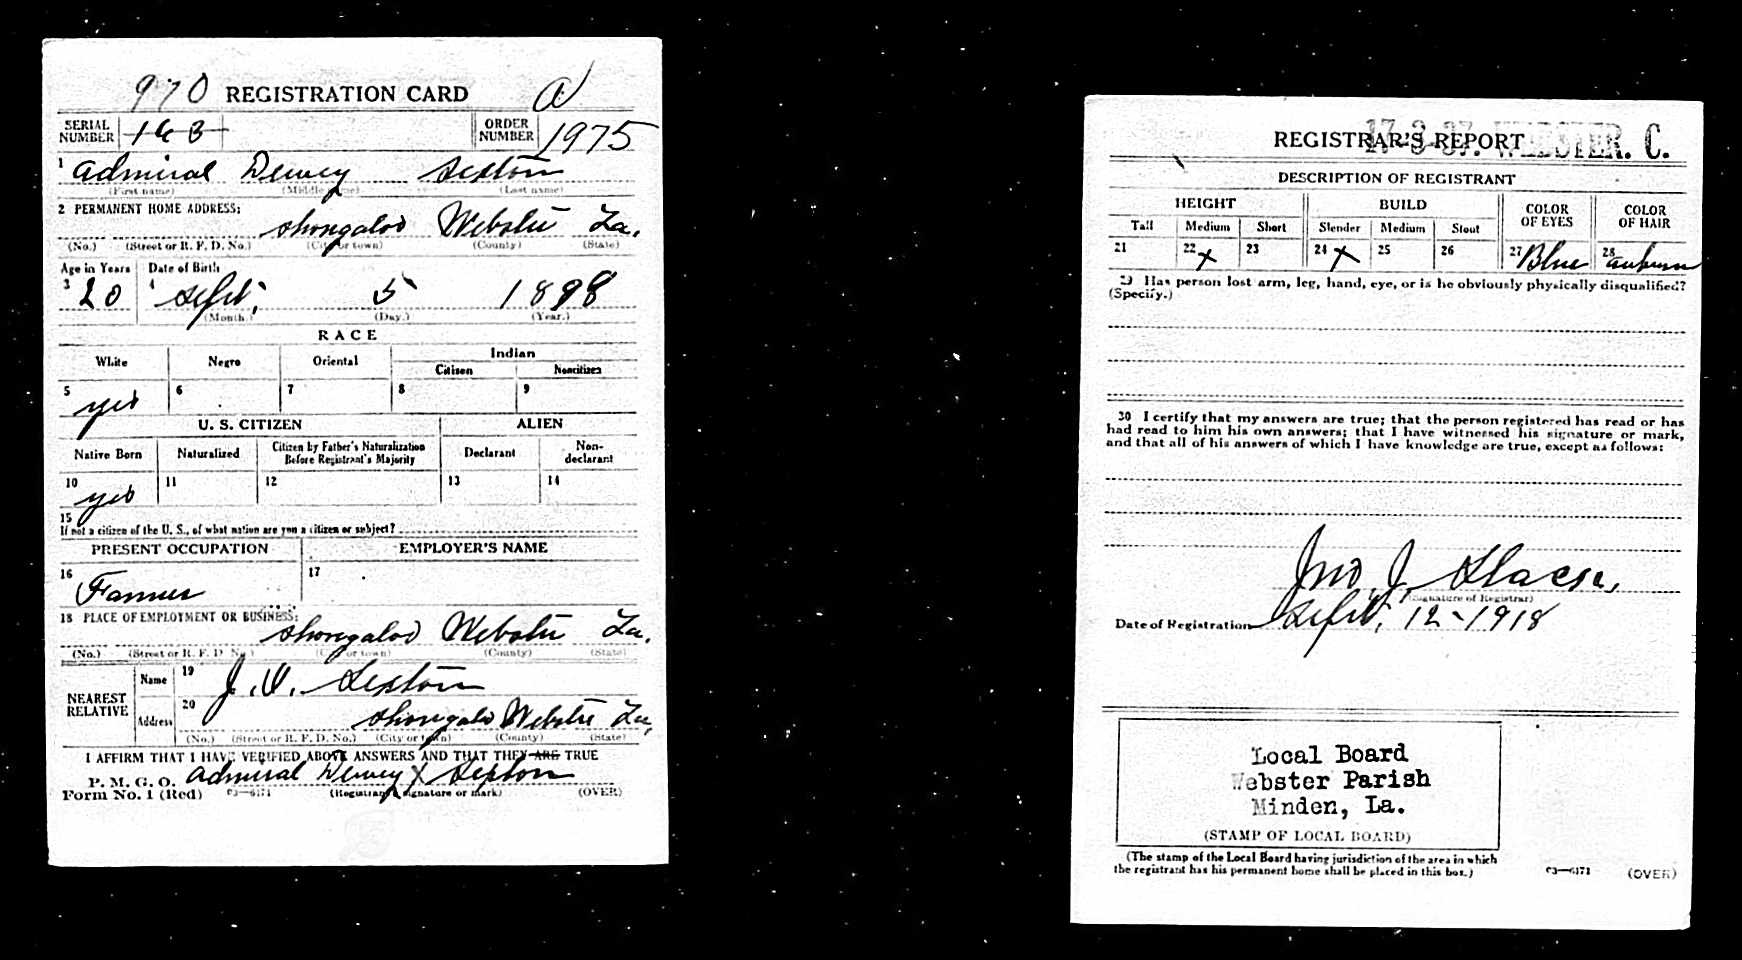 970 REGISTRATION CARD A
SERIAL NUMBER 163 ORDER NUMBER 1975
1 Admiral Dewey Sexton
(First name) (Middle name) (Last name)
2 PERMANENT HOME ADDRESS:
Shongaloo Webster La.
(No.) (Street or R. F. D. No.) (City or town) (County) (State)
Age in Years Date of Birth
3 20 4 Sept. 5 1898
(Month.) (Day.) (Year.)
RACE
White Negro Oriental Indian
Citizen Noncitizen
5 yes 6 7 8 9
U. S. CITIZEN ALIEN
Native Born Naturalized Citizen by Father's Naturalization Before Registrant's Majority Declarant Non-declarant
10 yes 11 12 13 14
15
If not a citizen of the U. S., of what nation are you a citizen or subject?
PRESENT OCCUPATION EMPLOYER'S NAME
16 Farmer 17
18 PLACE OF EMPLOYMENT OR BUSINESS:
Shongaloo Webster La.
(No.) (Street or R. F. D. No.) (City or town) (County) (State)
NEAREST RELATIVE Name 19 J. V. Sexton
Address 20 Shongaloo Webster La.
(No.) (Street or R. F. D. No.) (City or town) (County) (State)
I AFFIRM THAT I HAVE VERIFIED ABOVE ANSWERS AND THAT THEY ARE TRUE
P. M. G. O.
Form No. 1 (Red) 03—6171 Admiral Dewey X Sexton
(Registrant's signature or mark) (OVER)
REGISTRAR'S REPORT
17-3-37. WEBSTER. C.
DESCRIPTION OF REGISTRANT
HEIGHT BUILD COLOR OF EYES COLOR OF HAIR
Tall Medium Short Slender Medium Stout
21 22 x 23 24 x 25 26 27 Blue 28 auburn
29 Has person lost arm, leg, hand, eye, or is he obviously physically disqualified?
(Specify.)
30 I certify that my answers are true; that the person registered has read or has
had read to him his own answers; that I have witnessed his signature or mark,
and that all of his answers of which I have knowledge are true, except as follows:
Jno. J.
(Signature of Registrar)
Date of Registration Sept. 12-1918
Local Board
Webster Parish
Minden, La.
(STAMP OF LOCAL BOARD)
(The stamp of the Local Board having jurisdiction of the area in which
the registrant has his permanent home shall be placed in this box.)
03—6171 (OVER)